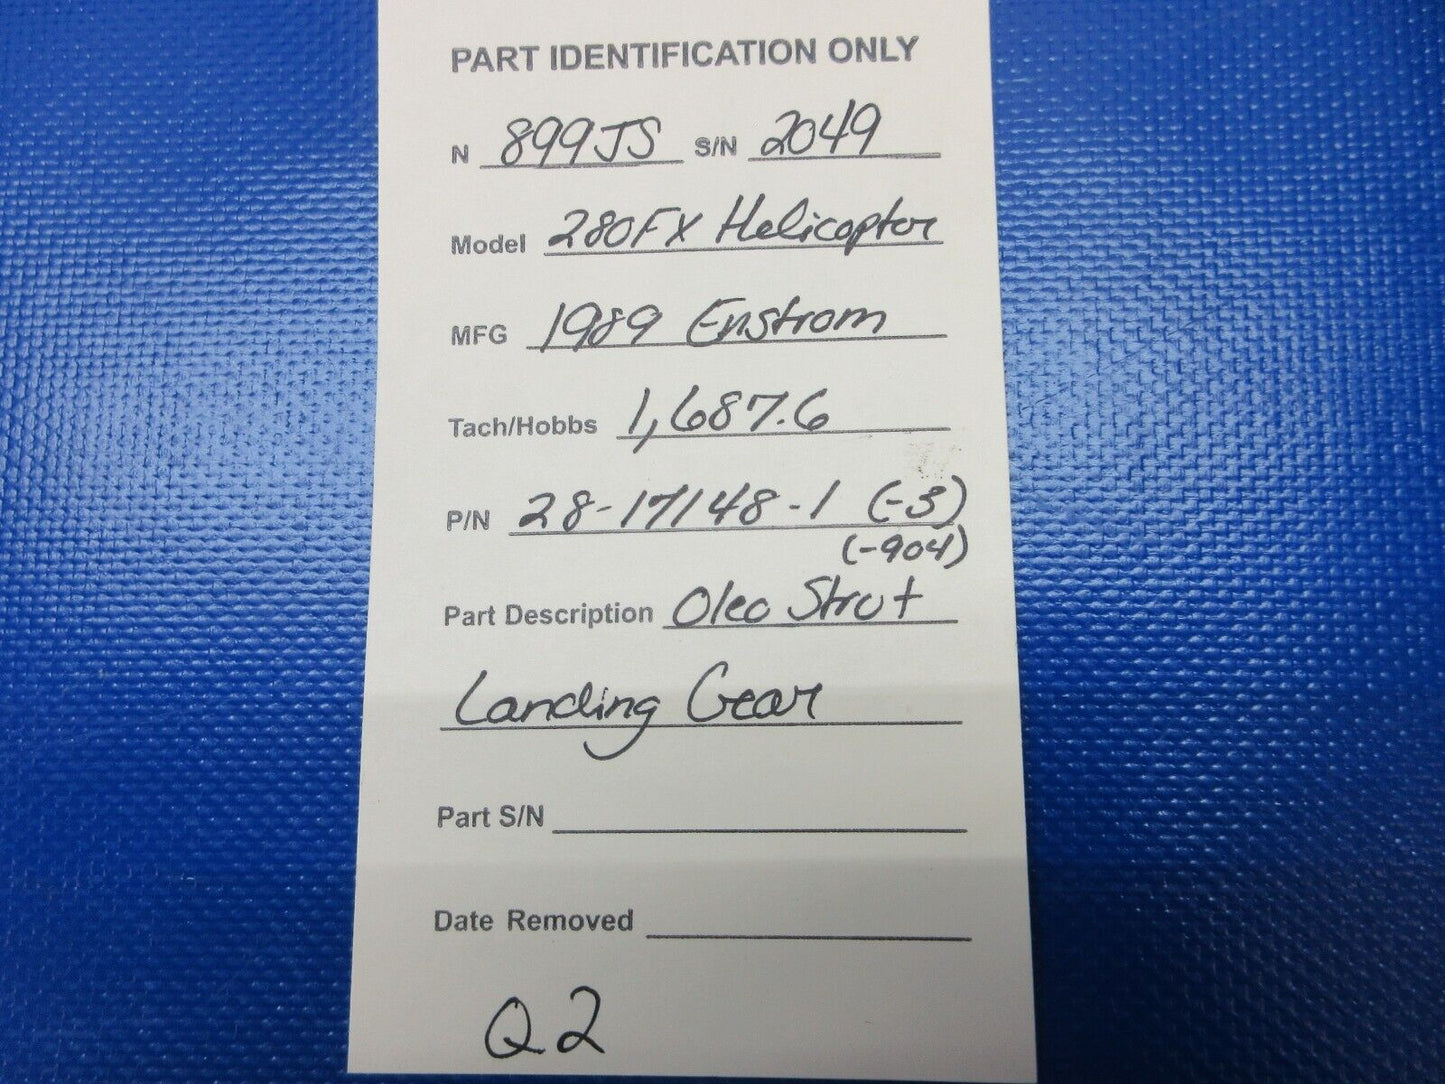 PART IDENTIFICATION ONLY
N 899JS S/N 2049
Model 280FX Helicopter
MFG 1989 Enstrom
Tach/Hobbs 1,687.6
P/N 28-17148-1 (-3)
(-904)
Part Description Oleo Strut
Landing Gear
Part S/N
Date Removed
Q2